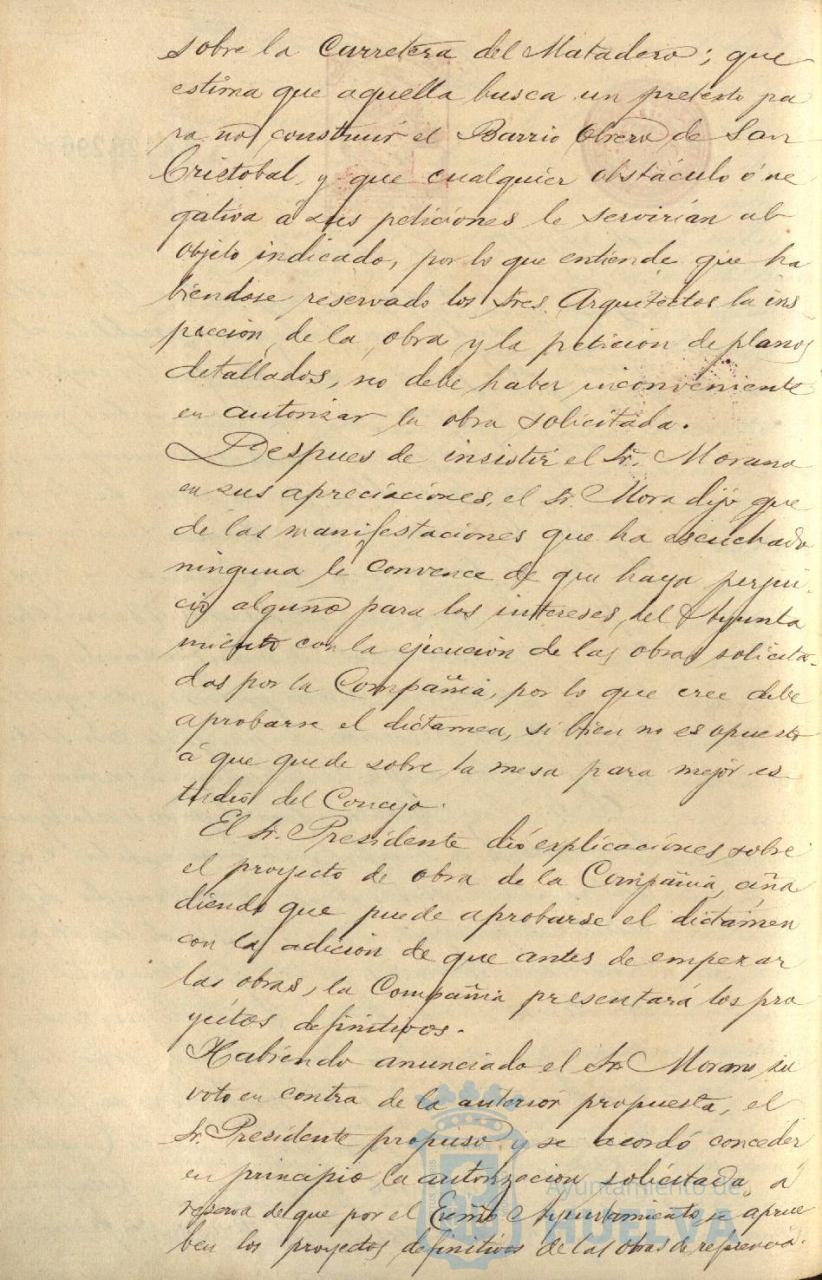 sobre la Carretera del Matadero; que
estima que aquella busca un pretexto pa
ra no construir el Barrio Obrero de San
Cristobal, y que cualquier obstáculo ó ne
gativa á sus peticiones le servirian al
objeto indicado, por lo que entiende que ha
biendose reservado los Sres. Arquitectos la ins
pección de la obra y la petición de planos
detallados, no debe haber inconveniente
en autorizar la obra solicitada.
Despues de insistir el Sr. Morano
en sus apreciaciones, el Sr. Mora dijo que
de las manifestaciones que ha escuchado
ninguna le convence de que haya perjui-
cio alguno para los intereses del Ayunta
miento con la ejecución de las obras solicita-
das por la Compañia, por lo que cree debe
aprobarse el dictamen, si bien no es opuesto
á que quede sobre la mesa para mejor es-
tudio del Concejo.
El Sr. Presidente dió explicaciones sobre
el proyecto de obra de la Compañia, aña
diendo que puede aprobarse el dictámen
con la adición de que antes de empezar
las obras, la Compañia presentará los pro
yectos definitivos.
Habiendo anunciado el Sr. Morano su
voto en contra de la anterior propuesta, el
Sr. Presidente propuso y se acordó conceder
en principio la autorización solicitada, á
reserva de que por el Excmo. Ayuntamiento se aprue
ben los proyectos definitivos de las obras de referencia.
Ayuntamiento de
HUELVA